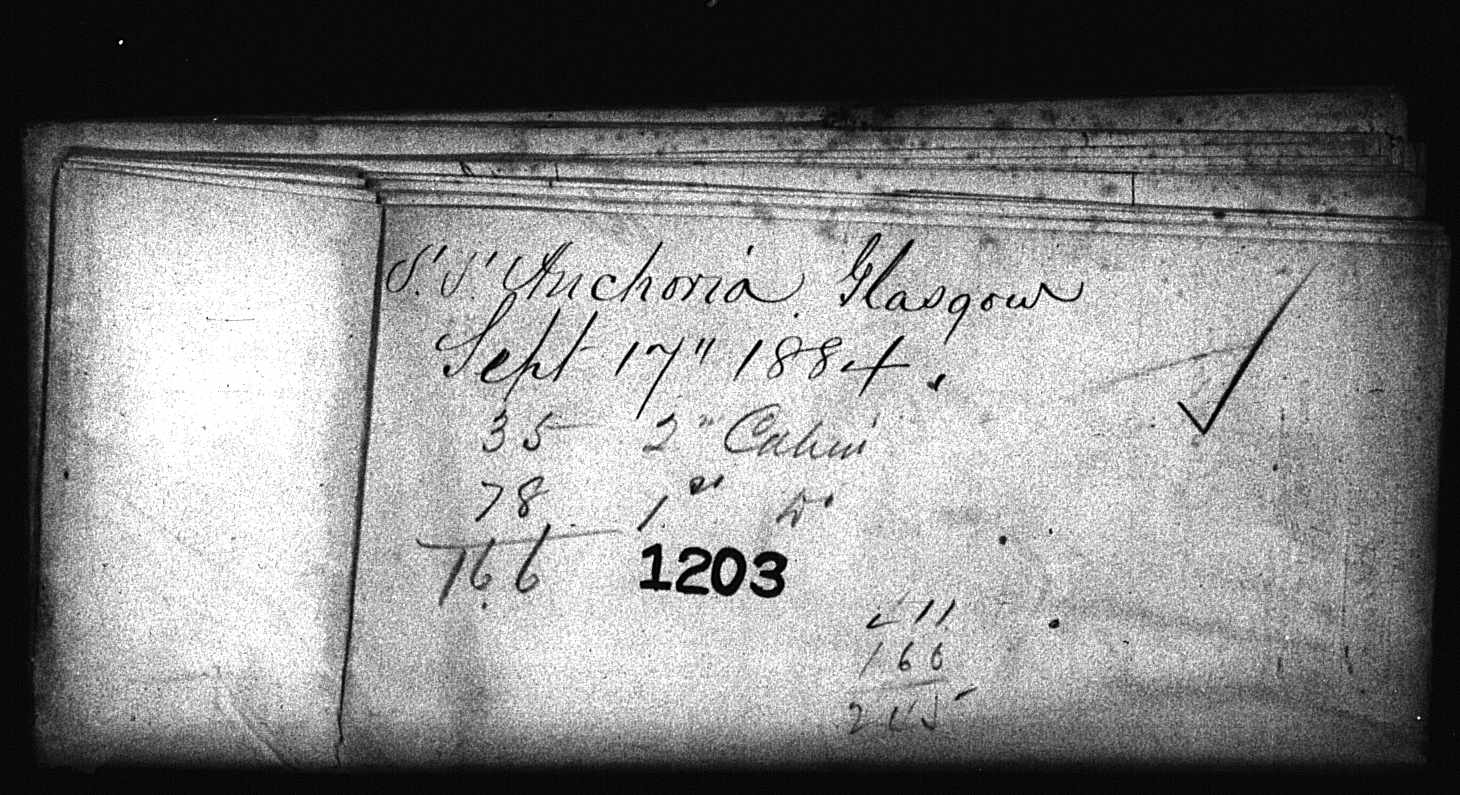 S.S. Anchoria. Glasgow
Sept 17" 1884.
35 2" Cabin
78 1st Do
166 1203
166